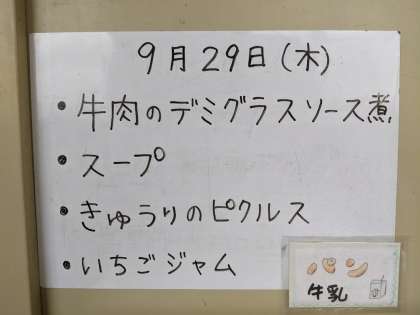 9月29日(木)
• 牛肉のデミグラスソース煮
• スープ
• きゅうりのピクルス
• いちごジャム
パン
牛乳